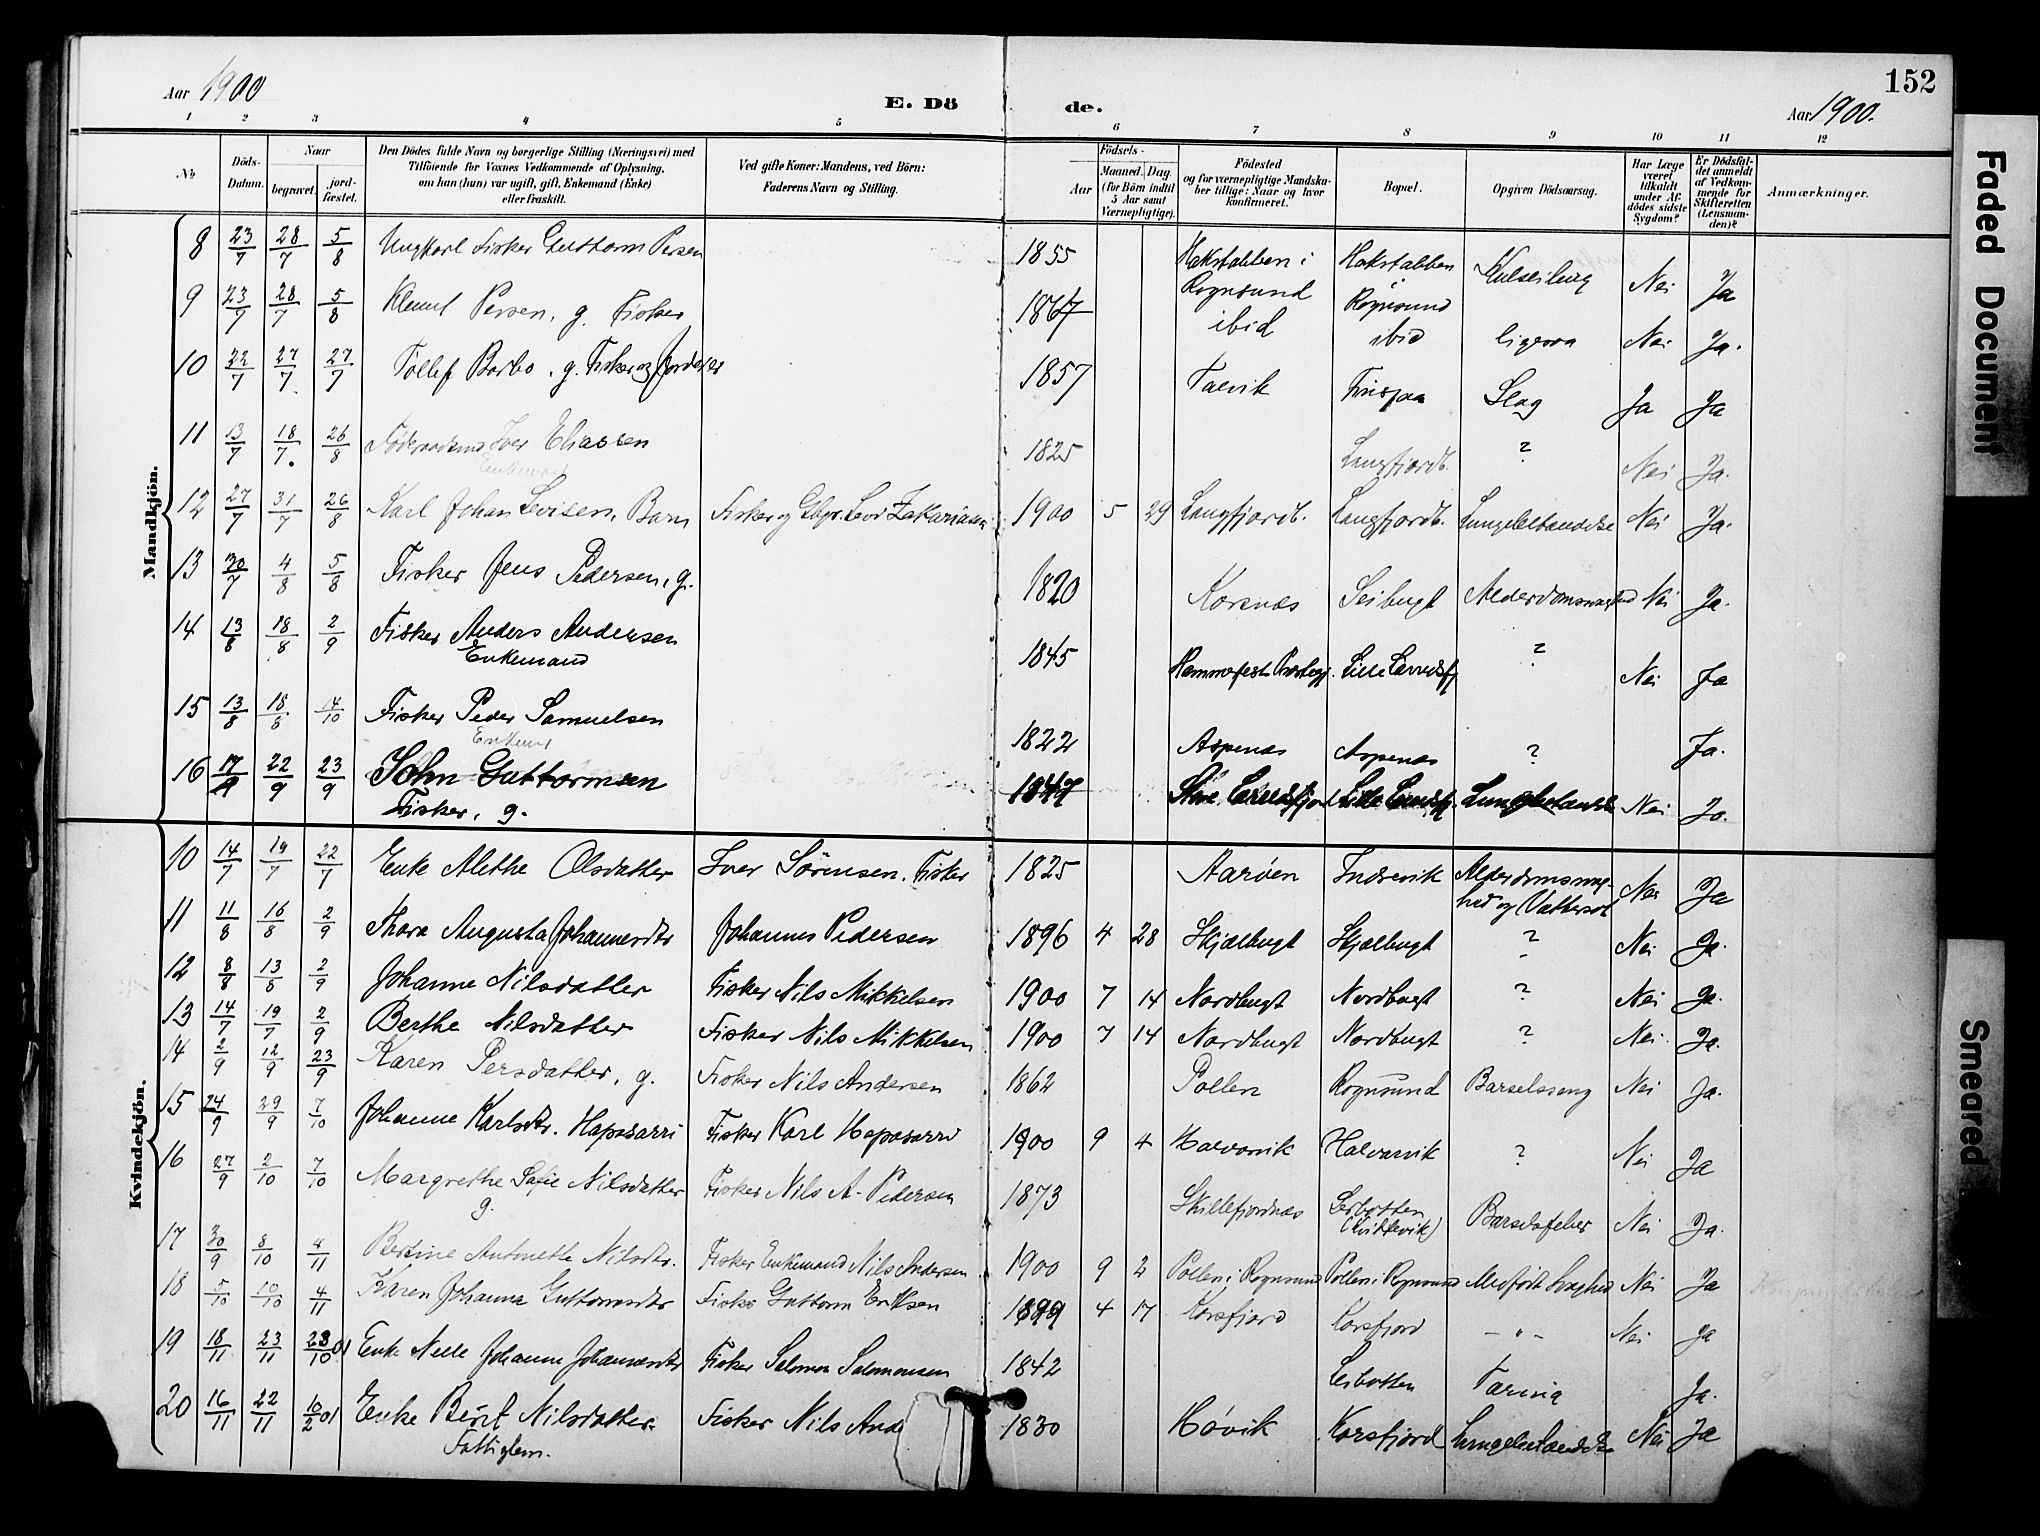 Aar 1900
E. Döde.
Aar 1900.
152
1 2 3 4 5 6 7 8 9 10 11 12
No
Döds-Datum.
Naar
begravet.
jord-fæstet.
Den Dödes fulde Navn og borgerlige Stilling (Næringsvei) med
Tilföiende for Voxnes Vedkommende af Oplysning,
om han (hun) var ugift, gift, Enkemand (Enke)
eller fraskilt.
Ved gifte Koner: Mandens, ved Börn:
Faderens Navn og Stilling.
Födsels-
Aar
Maaned. Dag.
(for Börn indtil
5 Aar samt
Værnepligtige).
Födested
og for værnepligtige Mandska-
ber tillige: Naar og hvor
konfirmeret.
Bopæl.
Opgiven Dödsaarsag.
Har Læge
været
tilkaldt
under Af-
dödes sidste
Sygdom?
Er Dödsfal-
det anmeldt
af Vedkom-
mende for
Skifteretten
(Lensman-
den)?
Anmærkninger.
Mandkjön.
8 23/7 28/7 5/8 Ungkarl Fisker Guttorm Persen 1855 Hakstabben i Rognsund Hakstabben i Rognsund Kulseiling Nei Ja
9 23/7 28/7 5/8 Klemet Persen, g. Fisker 1867 ibid ibid ligesaa Nei Ja.
10 22/7 27/7 27/7 Tollef Barbo, g. Fisker og Jordejer 1857 Talvik Slag Ja Ja
11 13/7 18/7. 26/8 Föderaadsmd Iver Eliassen 1825 Langfjordb. ? Nei Ja.
Enkemand
12 27/7 31/7 26/8 Karl Johan Levisen, Barn Fisker og Gbr. Levi Zakariasen 1900 5 29 Langfjordb. Langfjordb. Lungebetændelse Nei Ja.
13 30/7 4/8 5/8 Fisker Jens Pedersen, g. 1820 Korsnæs Leibugt Alderdomssvaghed Nei Ja.
14 13/8 18/8 2/9 Fisker Anders Andersen 1845 Hammerfest Prestegj. Lille Lerredsfj ? Nei Ja
Enkemand
15 13/8 18/8 14/10 Fisker Peder Samuelsen 1822 Aspenæs Aspenæs ? Ja.
Enkemd
16 17/9 22/9 23/9 John Guttormsen 1847 Store Lerredsfjord Lille Lerredsfj. Lungebetændelse Nei Ja.
Fisker, g.
Kvindekjön.
10 14/7 19/7 22/7 Enke Alethe Olsdatter Iver Sörensen, Fisker 1825 Aaröen Indrevik Alderdomssvaghed og Vattersot Nei Ja
11 11/8 16/8 2/9 Thora Augusta Johannesdtr Johannes Pedersen 1896 4 28 Skjælbugt Skjælbugt ? Nei Ja.
12 8/8 13/8 2/9 Johanne Nilsdatter Fisker Nils Mikkelsen 1900 7 14 Nordbugt Nordbugt ? Nei Ja.
13 14/7 19/7 2/9 Berthe Nilsdatter Fisker Nils Mikkelsen 1900 7 14 Nordbugt Nordbugt ? Nei Ja.
14 2/9 12/9 23/9 Karen Persdatter, g. Fisker Nils Andersen 1862 Pollen Rognsund Barselsseng Nei Ja.
15 24/9 29/9 7/10 Johanne Karlsdtr. Hapasarri Fisker Karl Hapasarri 1900 9 4 Halvarvik Halvarvik ? Nei Ja
16 27/9 2/10 7/10 Margrethe Sofie Nilsdatter Fisker Nils A. Pedersen 1873 Skillefjordnæs Lerbotten (Kvittevik) Barselfeber Nei Ja.
g.
17 30/9 8/10 4/11 Bertine Antonette Nilsdtr. Fisker Enkemand Nils Andersen 1900 9 2 Pollen i Rognsund Pollen i Rognsund Medfödt Svaghed Nei Ja
18 5/10 10/10 4/11 Karen Johanna Guttormsdtr Fisker Guttorm Eriksen 1899 4 17 Korsfjord Korsfjord - " - Nei Ja
19 18/11 23/11 23/10 01 Enke Nelle Johanne Johannesdtr Fisker Salomon Salomonsen 1842 Leibotten Ja.
20 16/11 22/11 10/2 01 Enke Berit Nilsdatter. Fisker Nils And 1830 Hövik Korsfjord Lungebetændelse Nei Ja
Fattiglem.
Faded Document
Smeared